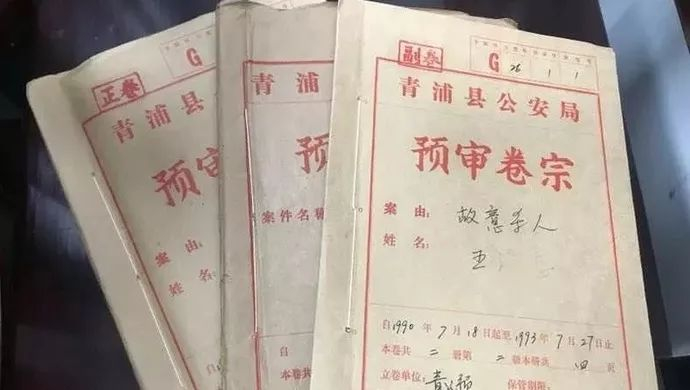 正卷
G
青浦县公安
预审
案由:
姓名:
G
青
预
案件名称
自
本卷共
立卷单位:
副卷
G 26 1 1
青浦县公安局
预审卷宗
案由: 故意杀人
姓名: 王
自1990年7月18日起至1993年7月27日止
本卷共二册第二册本册共 页
立卷单位: 保管期限: